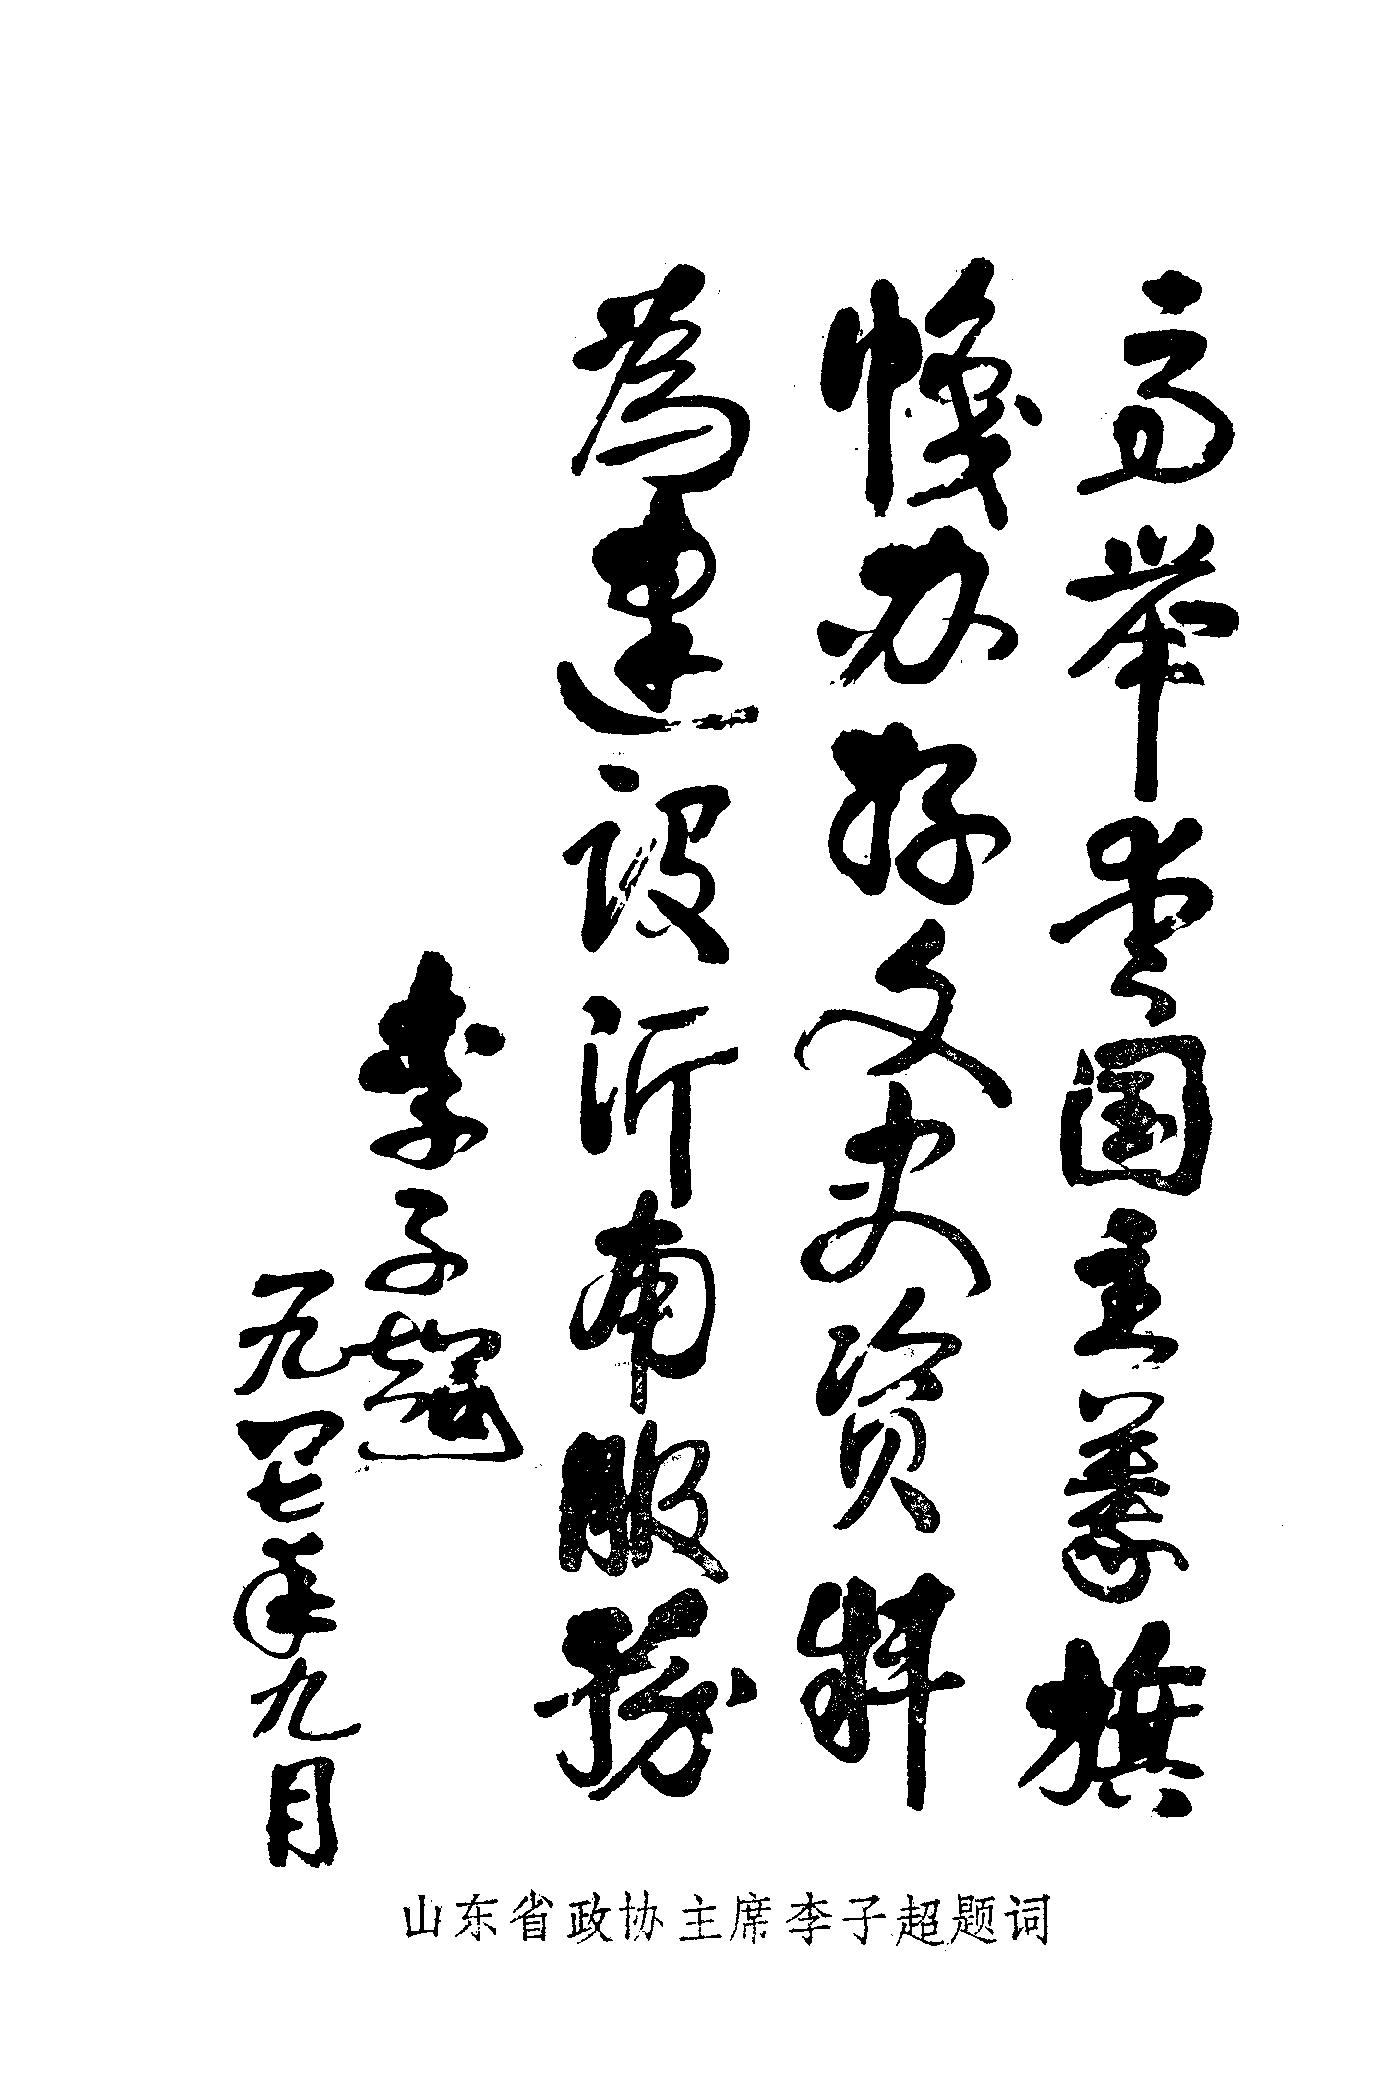 高举爱国主義旗
幟办好文史资料
為建设沂南服務
李子超
一九八七年九月
山东省政协主席李子超题词